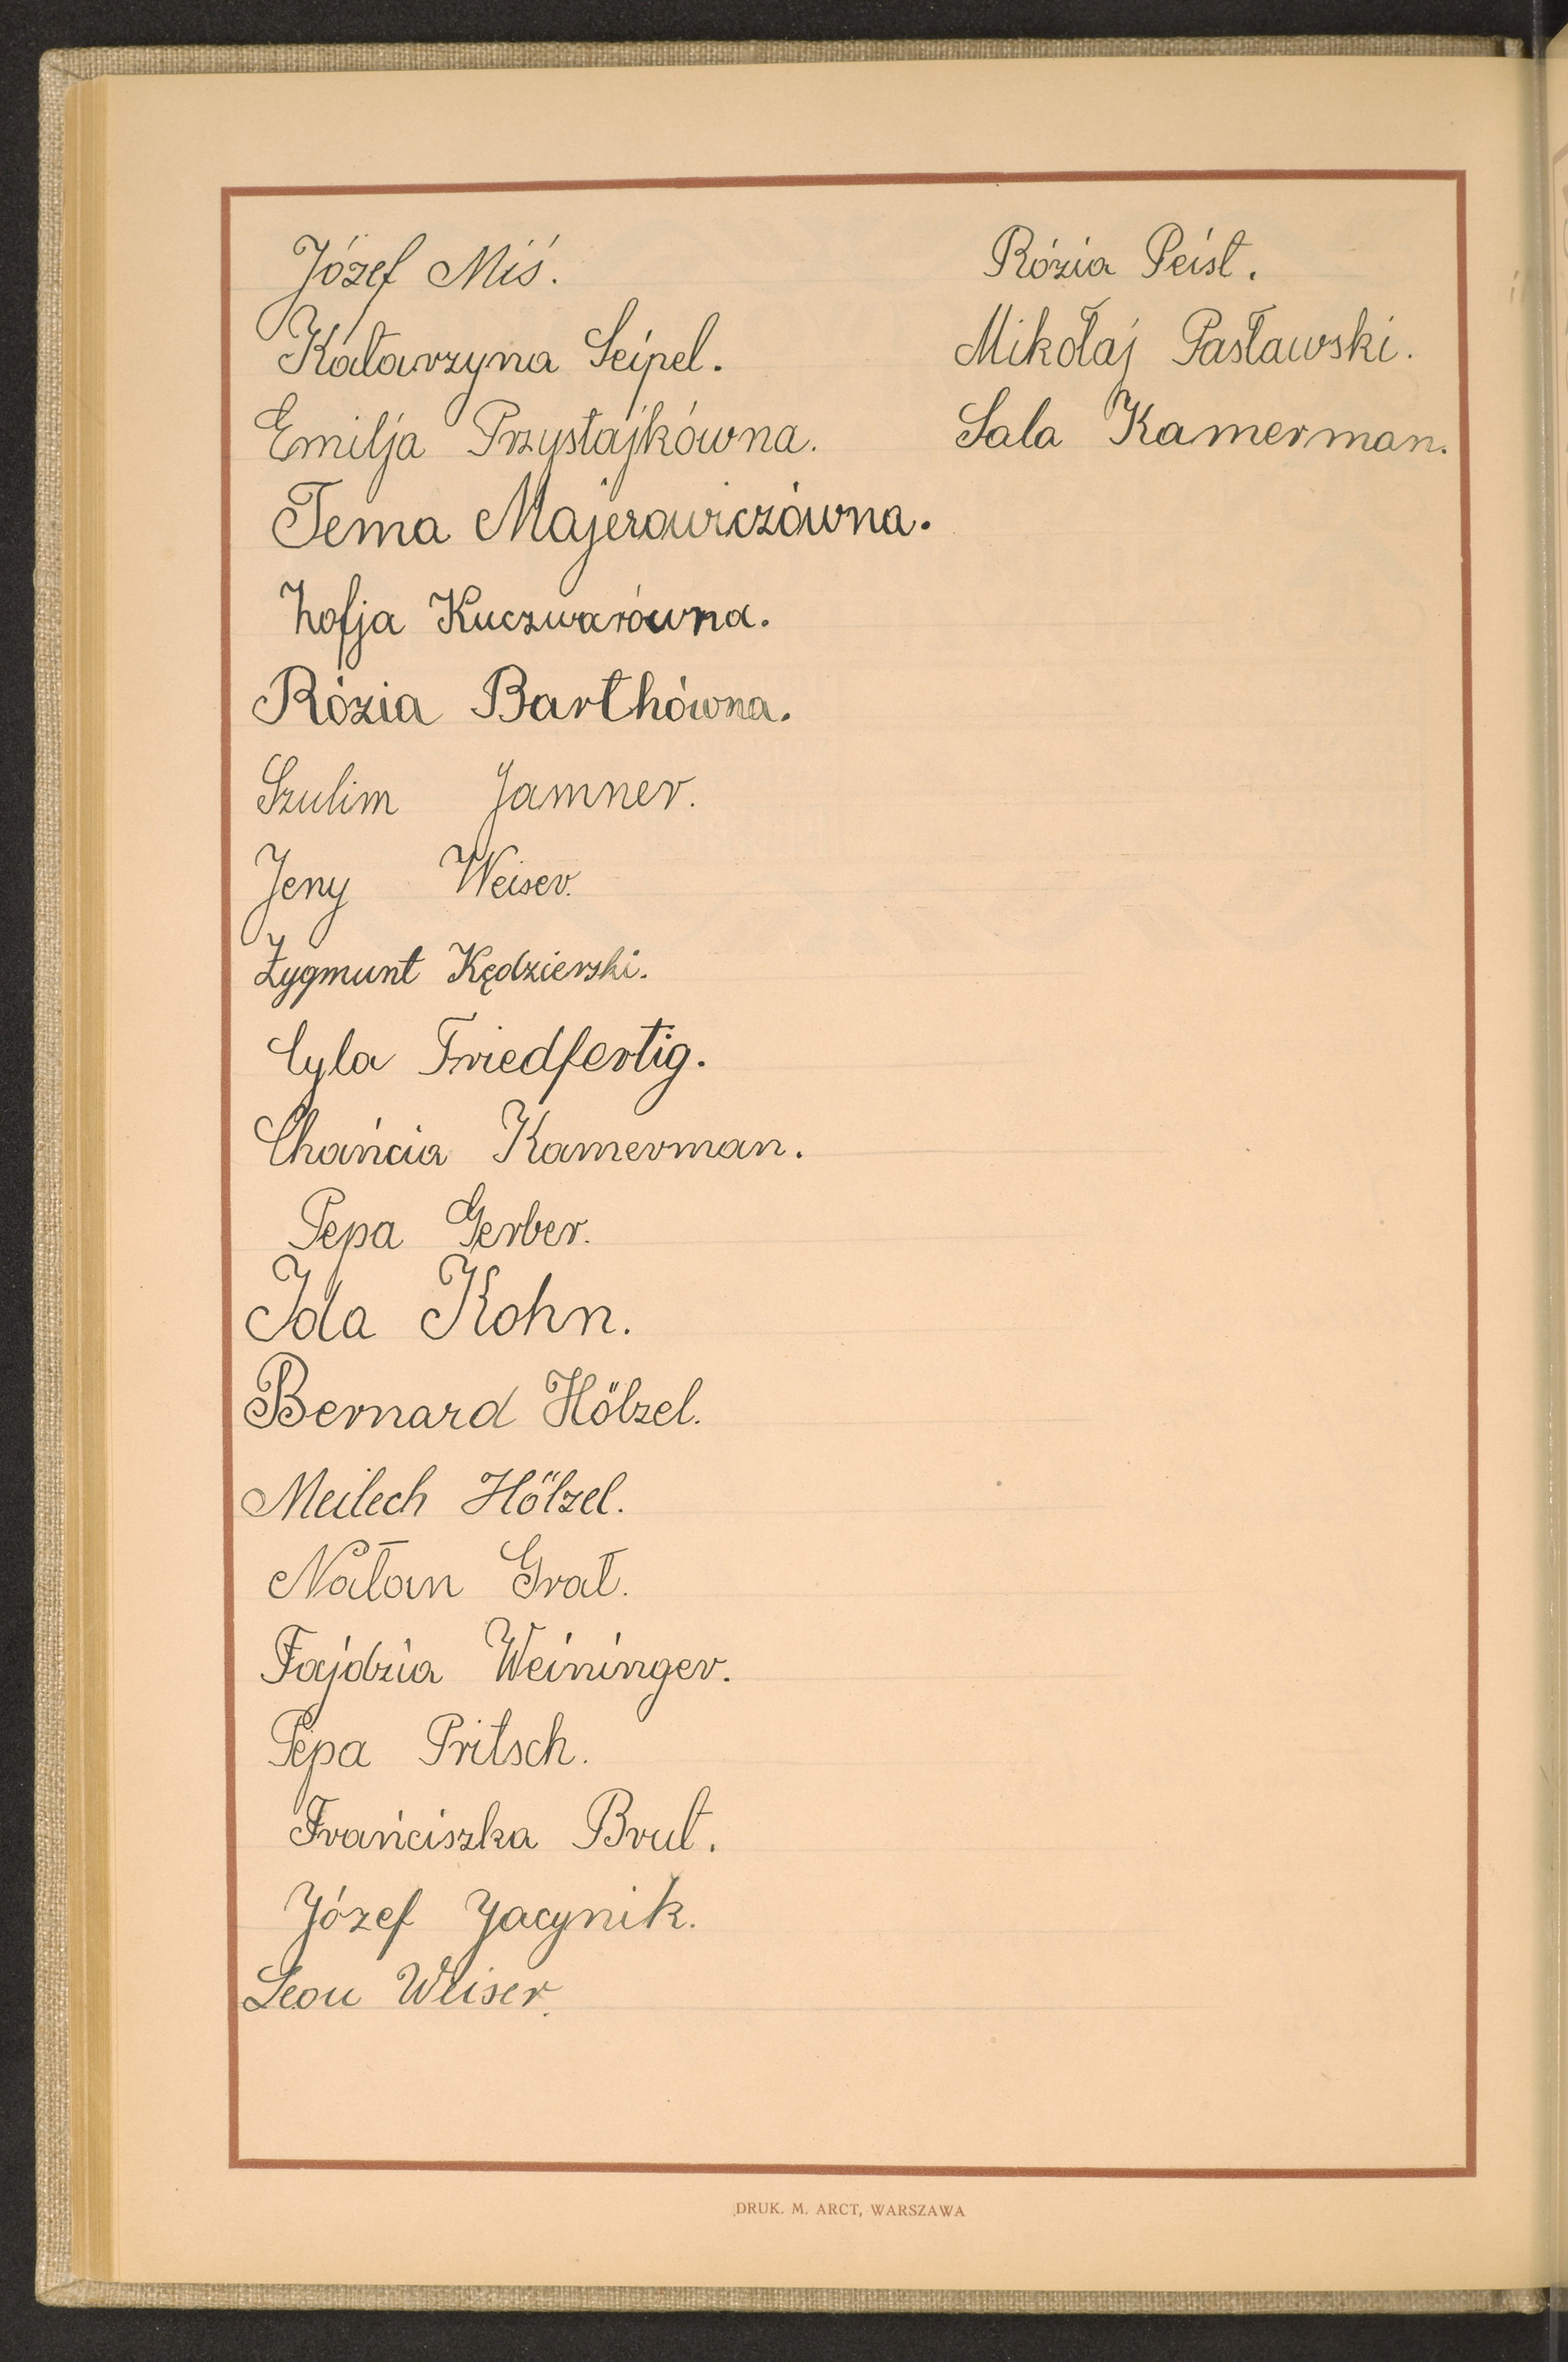 Józef Miś.
Katarzyna Seipel.
Emilja Przystajkówna.
Tema Majerowiczówna.
Zofja Kuczwarówna.
Rózia Barthówna.
Szulim Jamner.
Jeny Weiser.
Zygmunt Kędzierski.
Cyla Friedfertig.
Chańcia Kamerman.
Pepa Gerber.
Ida Kohn.
Bernard Hölzel.
Meilech Hölzel.
Natan Grat.
Fajdzia Weininger.
Pepa Pritsch.
Frańciszka Brut.
Józef Jacynik.
Leon Weiser.
Rózia Peist.
Mikołaj Pasławski.
Sala Kamerman.
DRUK. M. ARCT, WARSZAWA